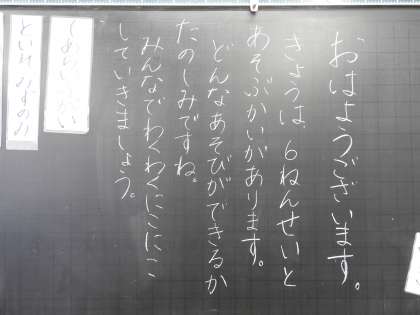 おはようございます。
きょうは、6ねんせいと
あそぶかいがあります。
どんなあそびができるか
たのしみですね。
みんなでわくわくにこにこ
していきましょう。
といれ みずのみ